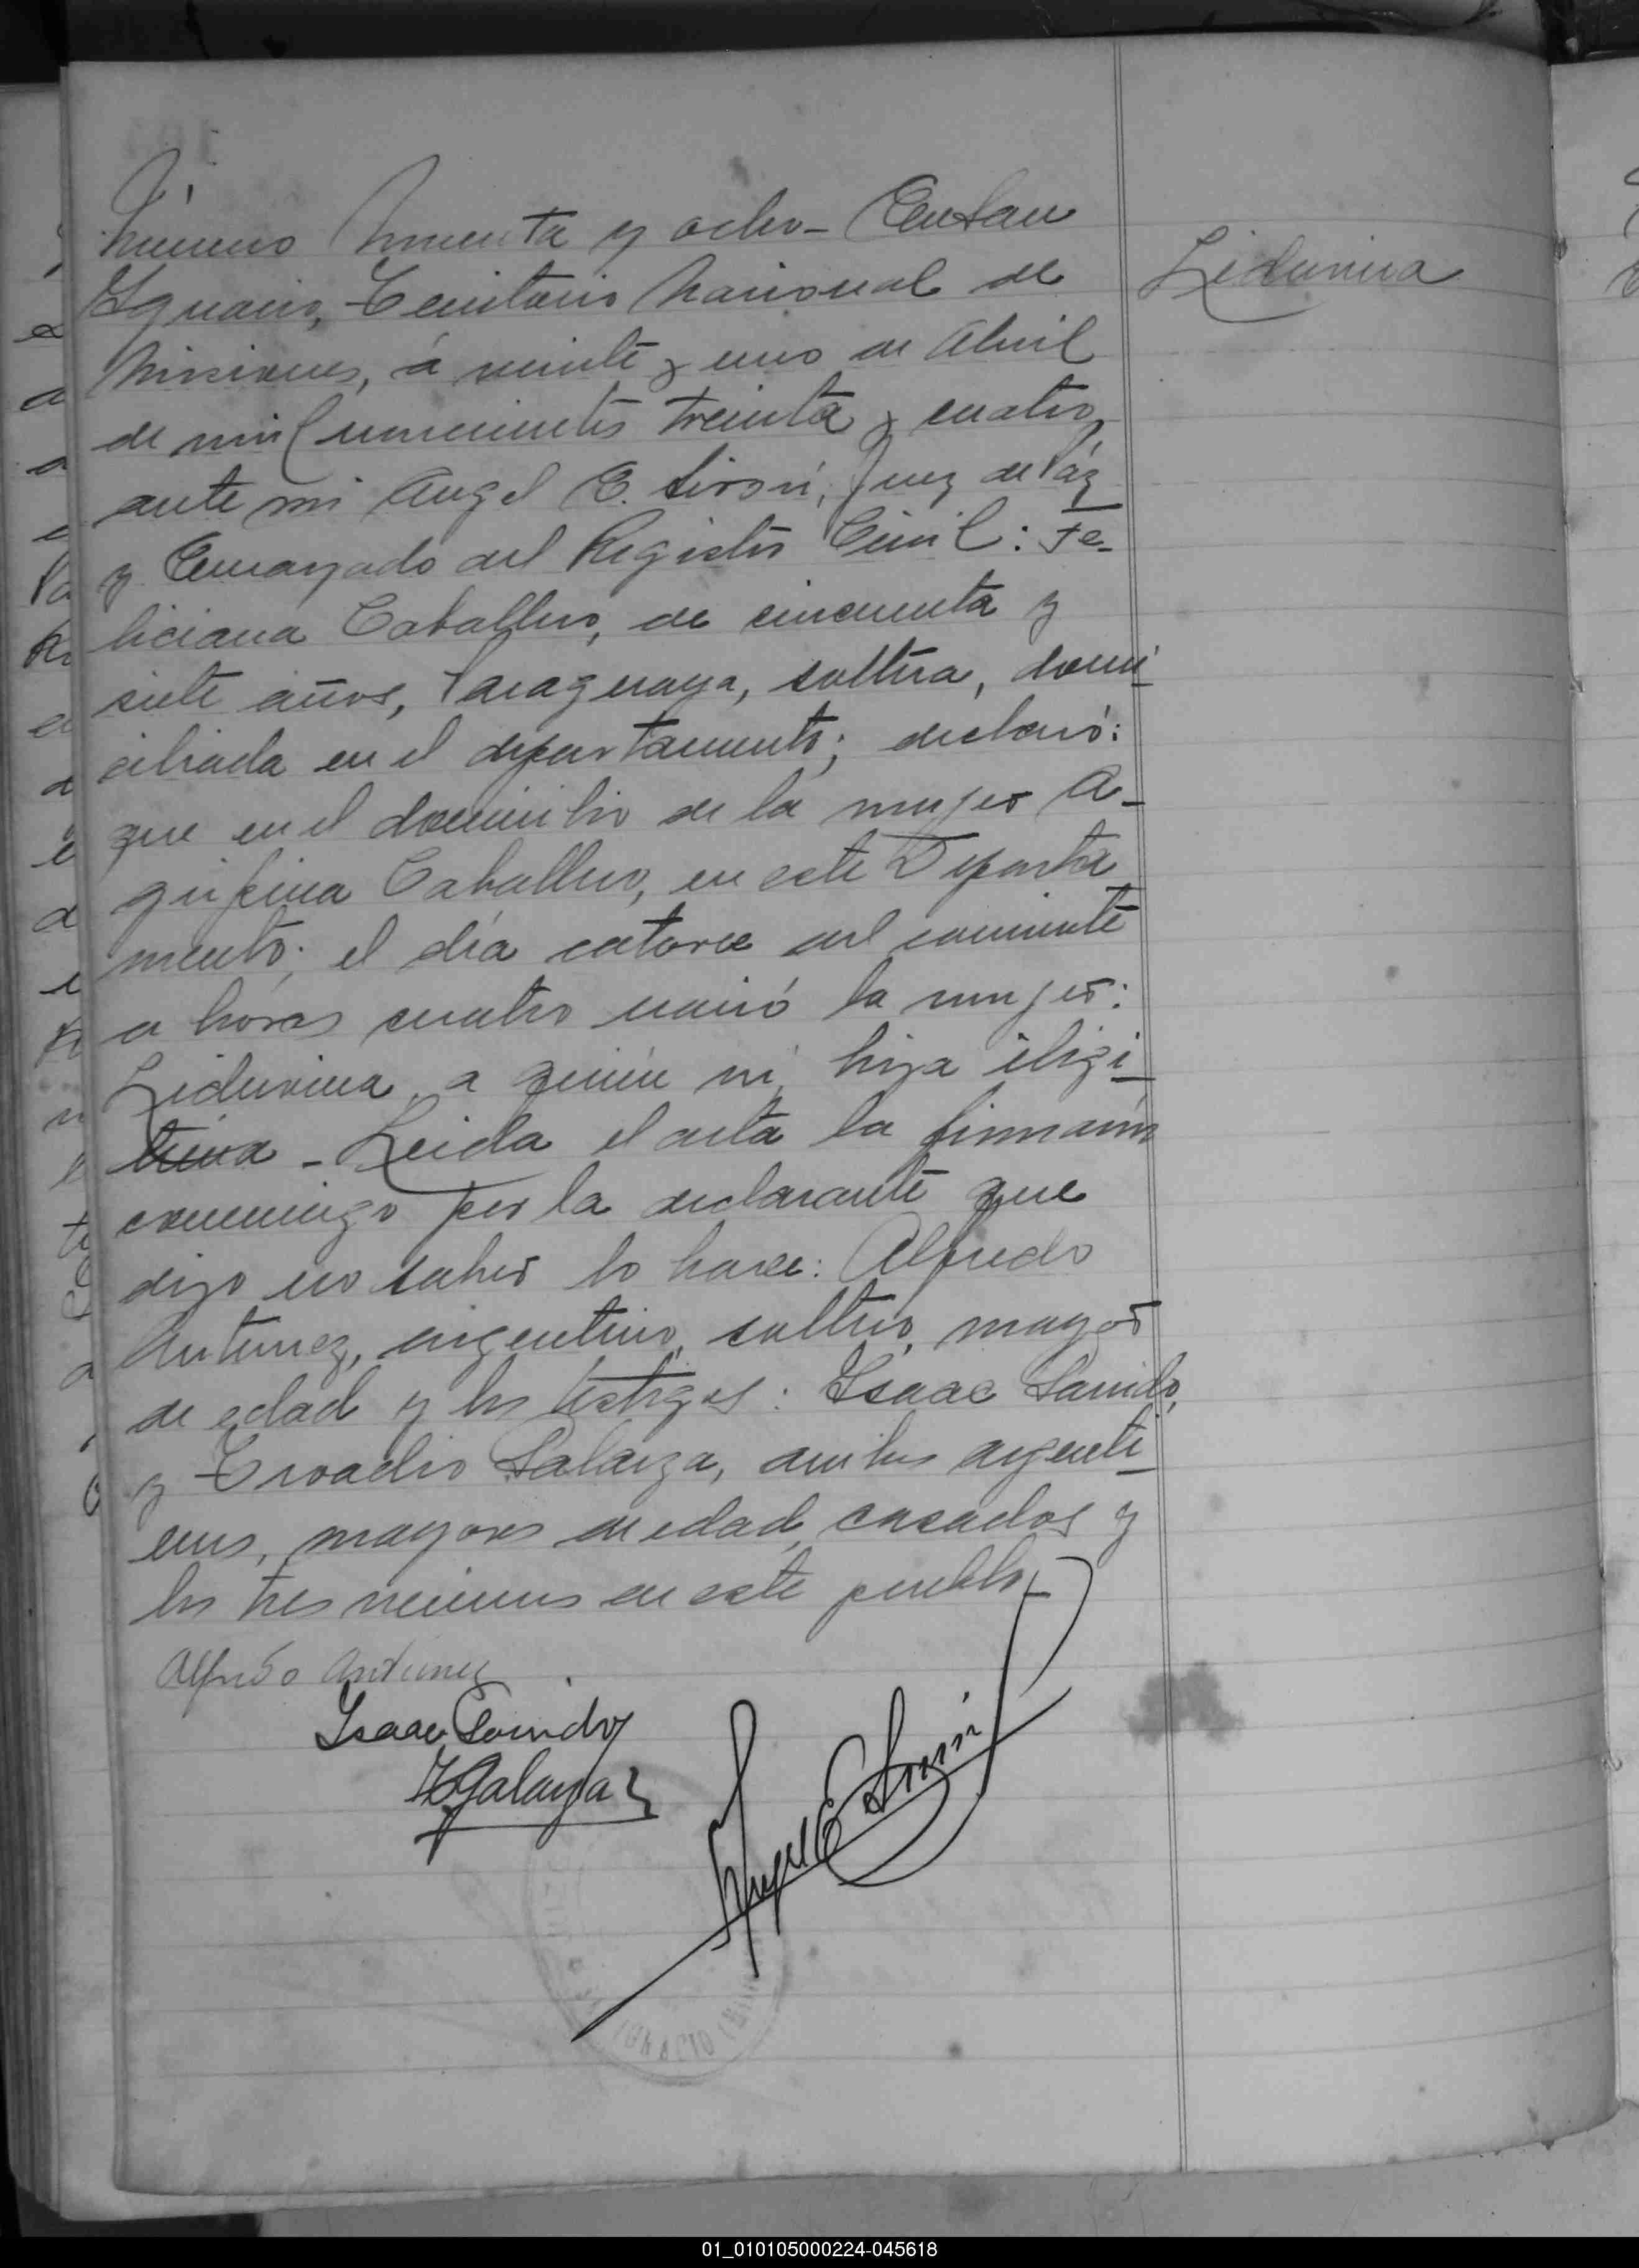 Número Noventa y ocho - En San
Ignacio, Territorio Nacional de
Misiones, á veinte y uno de Abril
de mil novecientos treinta y cuatro,
ante mi Angel E. Sirón, Juez de Páz
y Encargado del Registro Civil: Fe-
liciana Caballero, de cincuenta y
siete años, Paraguaya, soltera, domi-
ciliada en el departamento; declaró:
que en el domicilio de la mujer A-
gripina Caballero, en este Departa
mento; el día catorce del corriente
a horas cuatro nació la mujer:
Liduvina, a quién vi, hija ilegi-
tima - Leida el acta la firmarón
conmingo por la declarante que
dijo no saber lo hace: Alfredo
Antunez, argentino, soltero, mayor
de edad y los testigos: Isaac
y Galarza, ambos argenti-
nos, mayores de edad, casados y
los tres vecinos en este pueblo,-
Liduvina
Alfredo Antunez
Isaac
Galarza
Angel E Sirón
IGNACIO
01_010105000224-045618